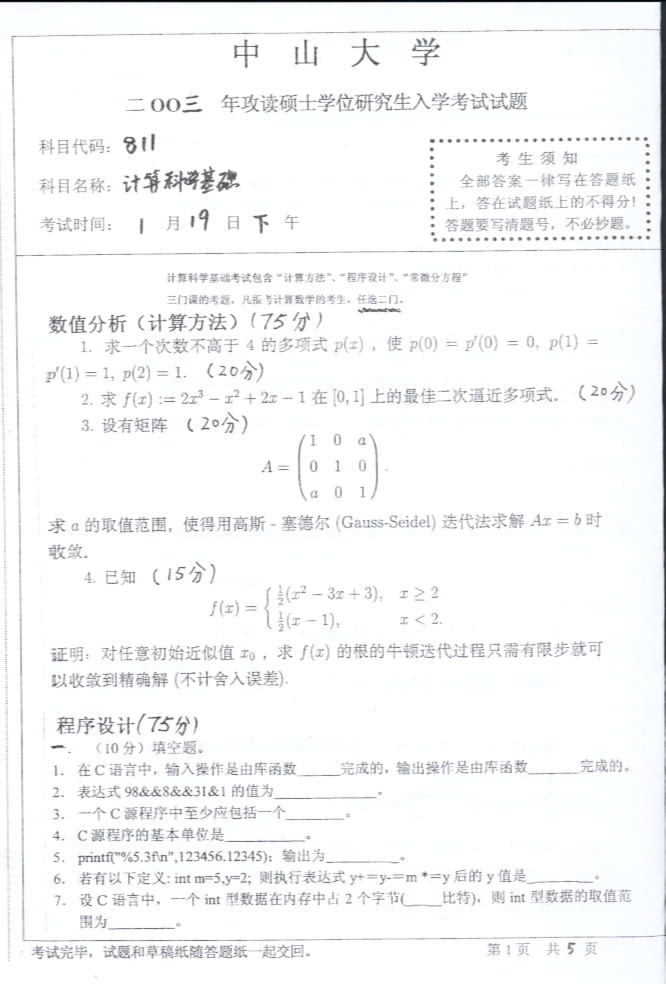 中 山 大 学
二 00三 年攻读硕士学位研究生入学考试试题
科目代码: 811
科目名称: 计算科学基础
考试时间: 1 月 19 日 下 午
考 生 须 知
全部答案一律写在答题纸
上,答在试题纸上的不得分!
答题要写清题号,不必抄题。
计算科学基础考试包含“计算方法”、“程序设计”、“常微分方程”
三门课的考题,凡报考计算数学的考生,任选二门。
数值分析(计算方法)(75分)
1. 求一个次数不高于 4 的多项式 p(x) ,使 p(0) = p′(0) = 0, p(1) =
p′(1) = 1, p(2) = 1. (20分)
2. 求 f(x) := 2x³ − x² + 2x − 1 在 [0,1] 上的最佳二次逼近多项式. (20分)
3. 设有矩阵 (20分)
A = ( 1 0 a
0 1 0
a 0 1 ) .
求 a 的取值范围,使得用高斯 - 塞德尔 (Gauss-Seidel) 迭代法求解 Ax = b 时
收敛.
4. 已知 (15分)
f(x) = { ½(x² − 3x + 3), x ≥ 2
½(x − 1), x < 2.
证明:对任意初始近似值 x₀ ,求 f(x) 的根的牛顿迭代过程只需有限步就可
以收敛到精确解 (不计舍入误差).
程序设计(75分)
一. (10 分)填空题。
1. 在 C 语言中,输入操作是由库函数______完成的,输出操作是由库函数_______完成的。
2. 表达式 98&&8&&3I&1 的值为______________。
3. 一个 C 源程序中至少应包括一个________。
4. C 源程序的基本单位是___________。
5. printf("%5.3f\n",123456.12345); 输出为__________。
6. 若有以下定义: int m=5,y=2; 则执行表达式 y+=y-=m *=y 后的 y 值是_________。
7. 设 C 语言中,一个 int 型数据在内存中占 2 个字节(_____比特),则 int 型数据的取值范
围为_________。
考试完毕,试题和草稿纸随答题纸一起交回。
第 1 页 共 5 页